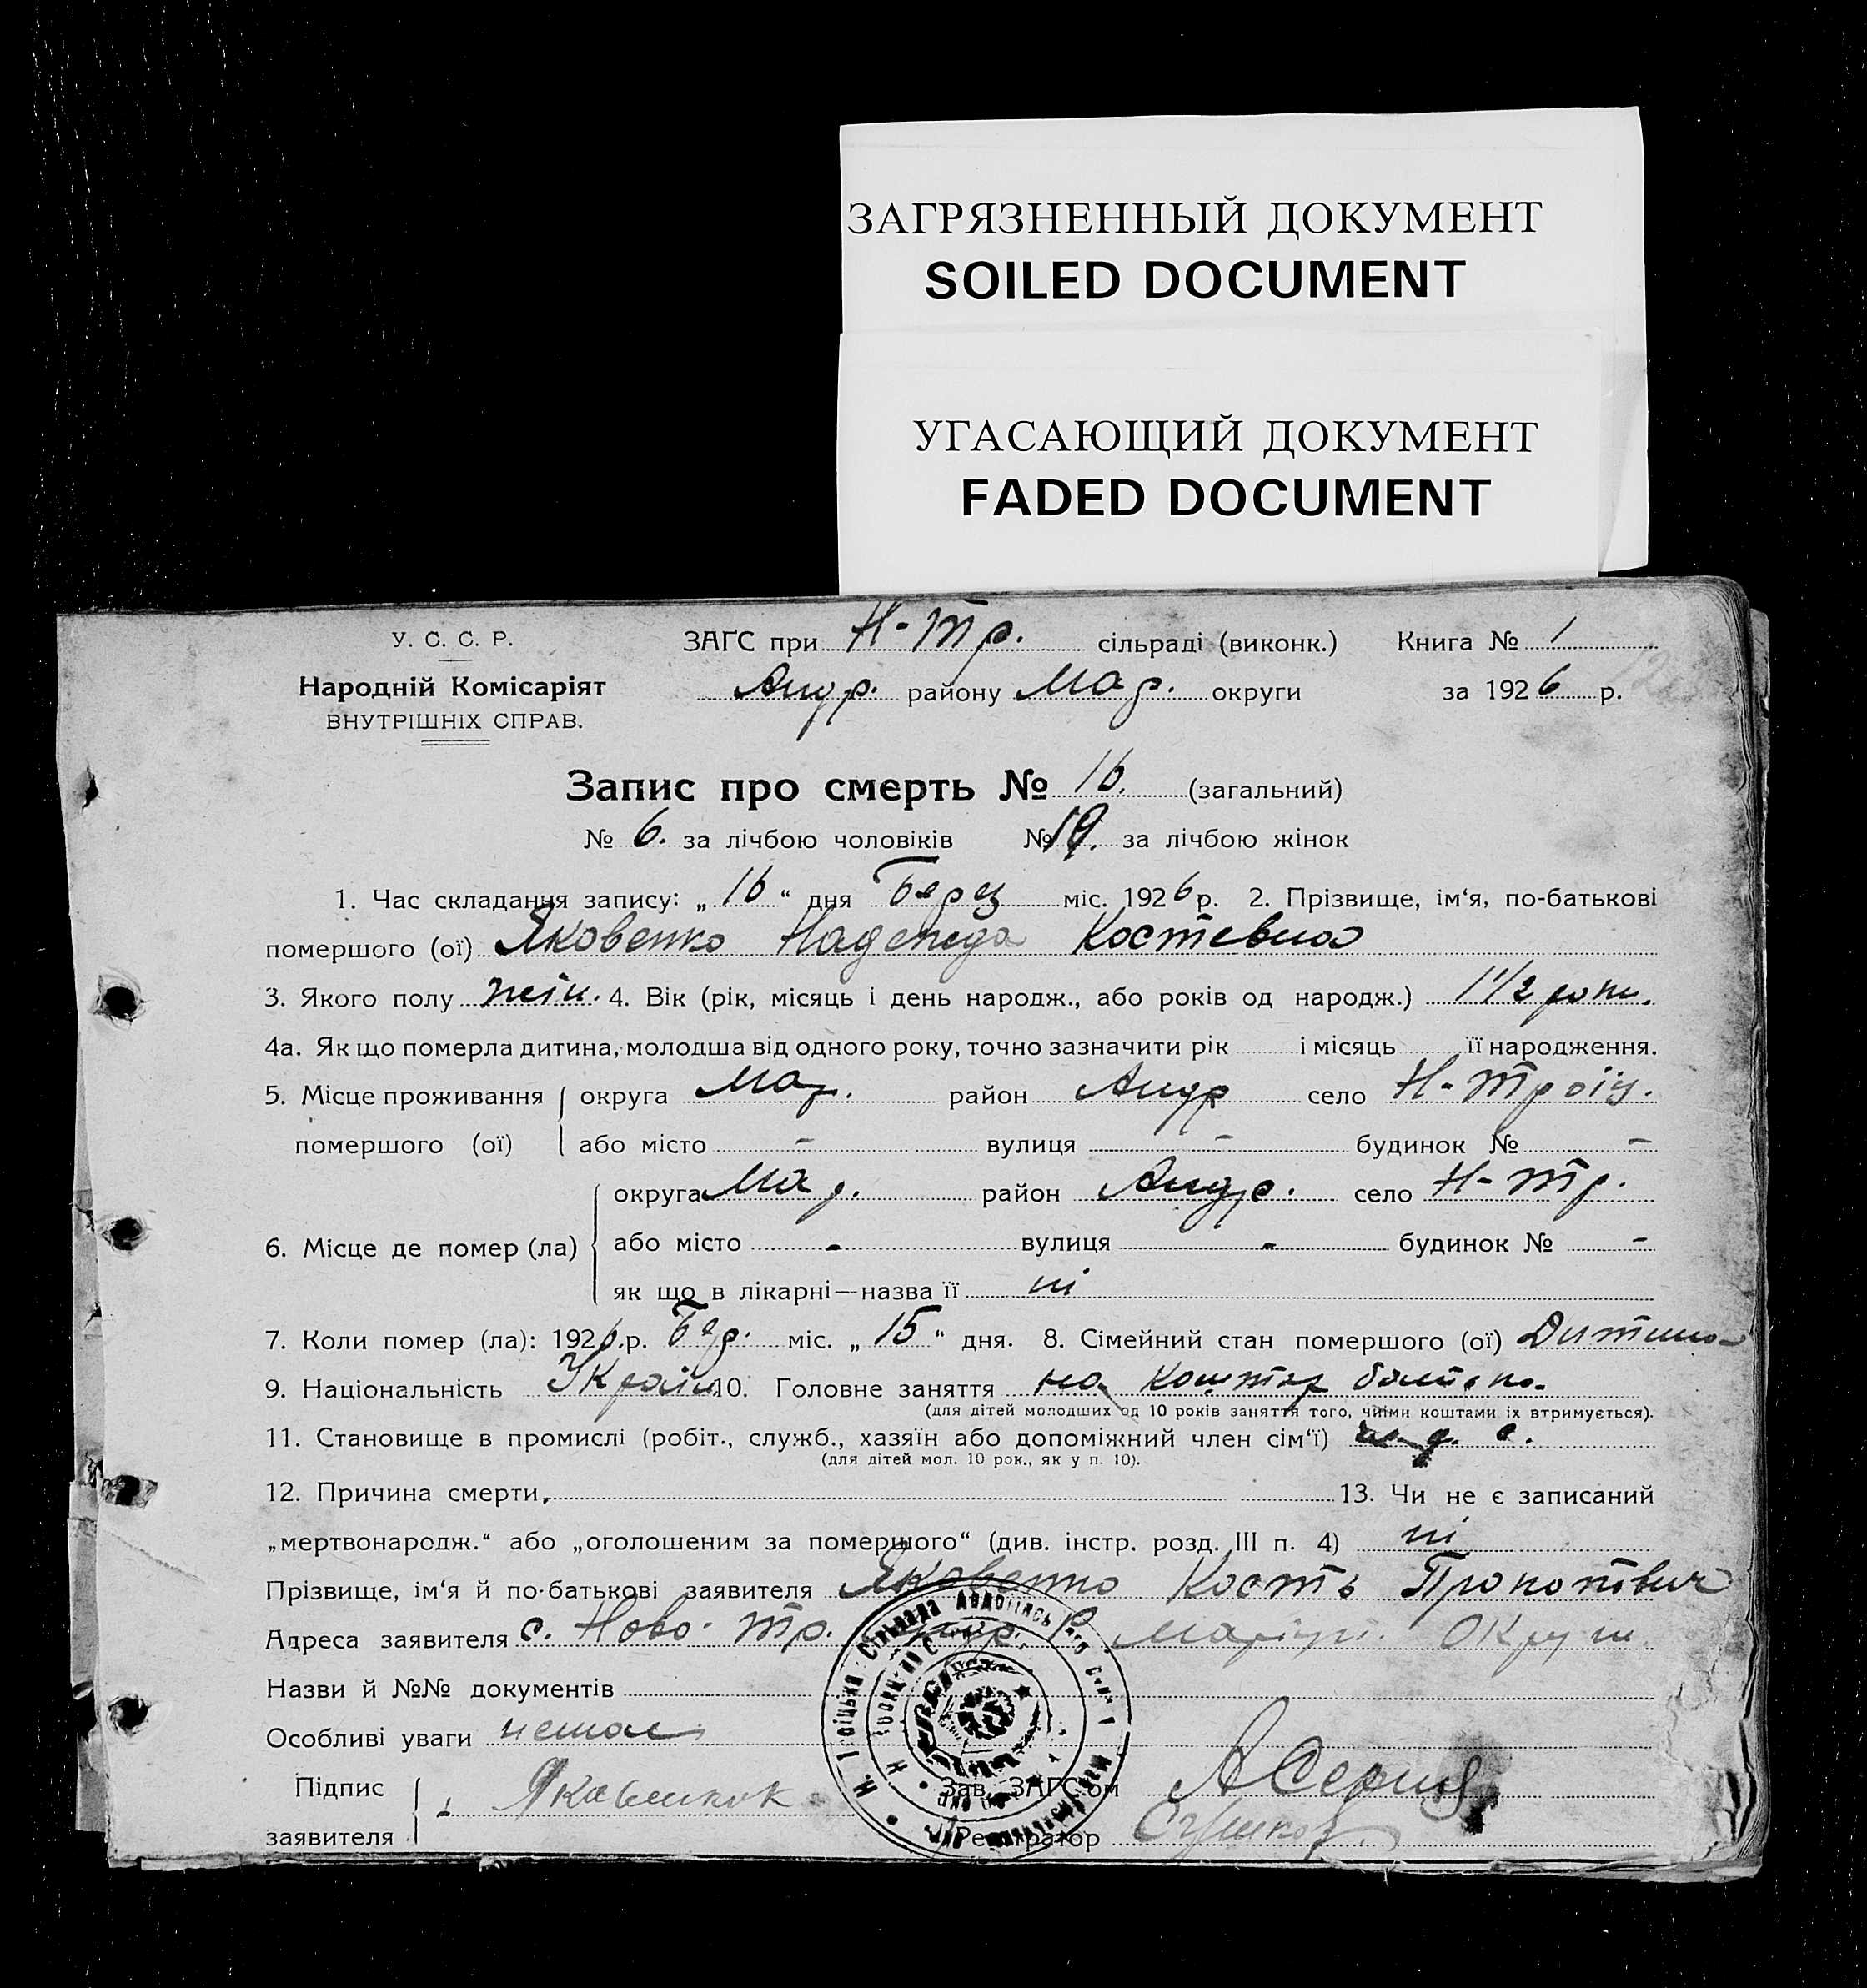 ЗАГРЯЗНЕННЫЙ ДОКУМЕНТ
SOILED DOCUMENT
УГАСАЮЩИЙ ДОКУМЕНТ
FADED DOCUMENT
У. С. С. Р. ЗАГС при Н-Тр. сільраді (виконк.) Книга № 1
Народній Комісаріят Андр. району Мар. округи за 1926 р.
ВНУТРІШНІХ СПРАВ.
Запис про смерть № 16. (загальний)
№ 6. за лічбою чоловіків № за лічбою жінок
1. Час складання запису: „16“ дня Берез міс. 1926 р. 2. Прізвище, ім‘я, по-батькові
помершого (ої) Яковенко Надежда Костевна
3. Якого полу жін. 4. Вік (рік, місяць і день народж., або років од народж.) 1 1/2 роки.
4а. Як що померла дитина, молодша від одного року, точно зазначити рік і місяць її народження.
5. Місце проживання округа Мар. район Андр село Н-Троїц.
помершого (ої) або місто - вулиця - будинок № -
округа Мар. район Андр. село Н-Тр.
6. Місце де помер (ла) або місто - вулиця - будинок № -
як що в лікарні—назва її ні
7. Коли помер (ла): 1926 р. Бер. міс. „15“ дня. 8. Сімейний стан помершого (ої) Дитина
9. Національність Україн 10. Головне заняття на коштах батька
(для дітей молодших од 10 років заняття того, чиїми коштами їх втримується).
11. Становище в промислі (робіт., служб., хазяїн або допоміжний член сім‘ї) ч. д. с.
(для дітей мол. 10 рок., як у п. 10).
12. Причина смерти 13. Чи не є записаний
„мертвонародж.“ або „оголошеним за помершого“ (див. інстр. розд. III п. 4) ні
Прізвище, ім‘я й по-батькові заявителя Яковенко Кость Прокопович
Адреса заявителя с. Ново-Тр. Андр. Р. Маріуп. Округи
Назви й №№ документів
Особливі уваги немає
Підпис Яковенко Зав. ЗАГС‘ом
заявителя Реєстратор